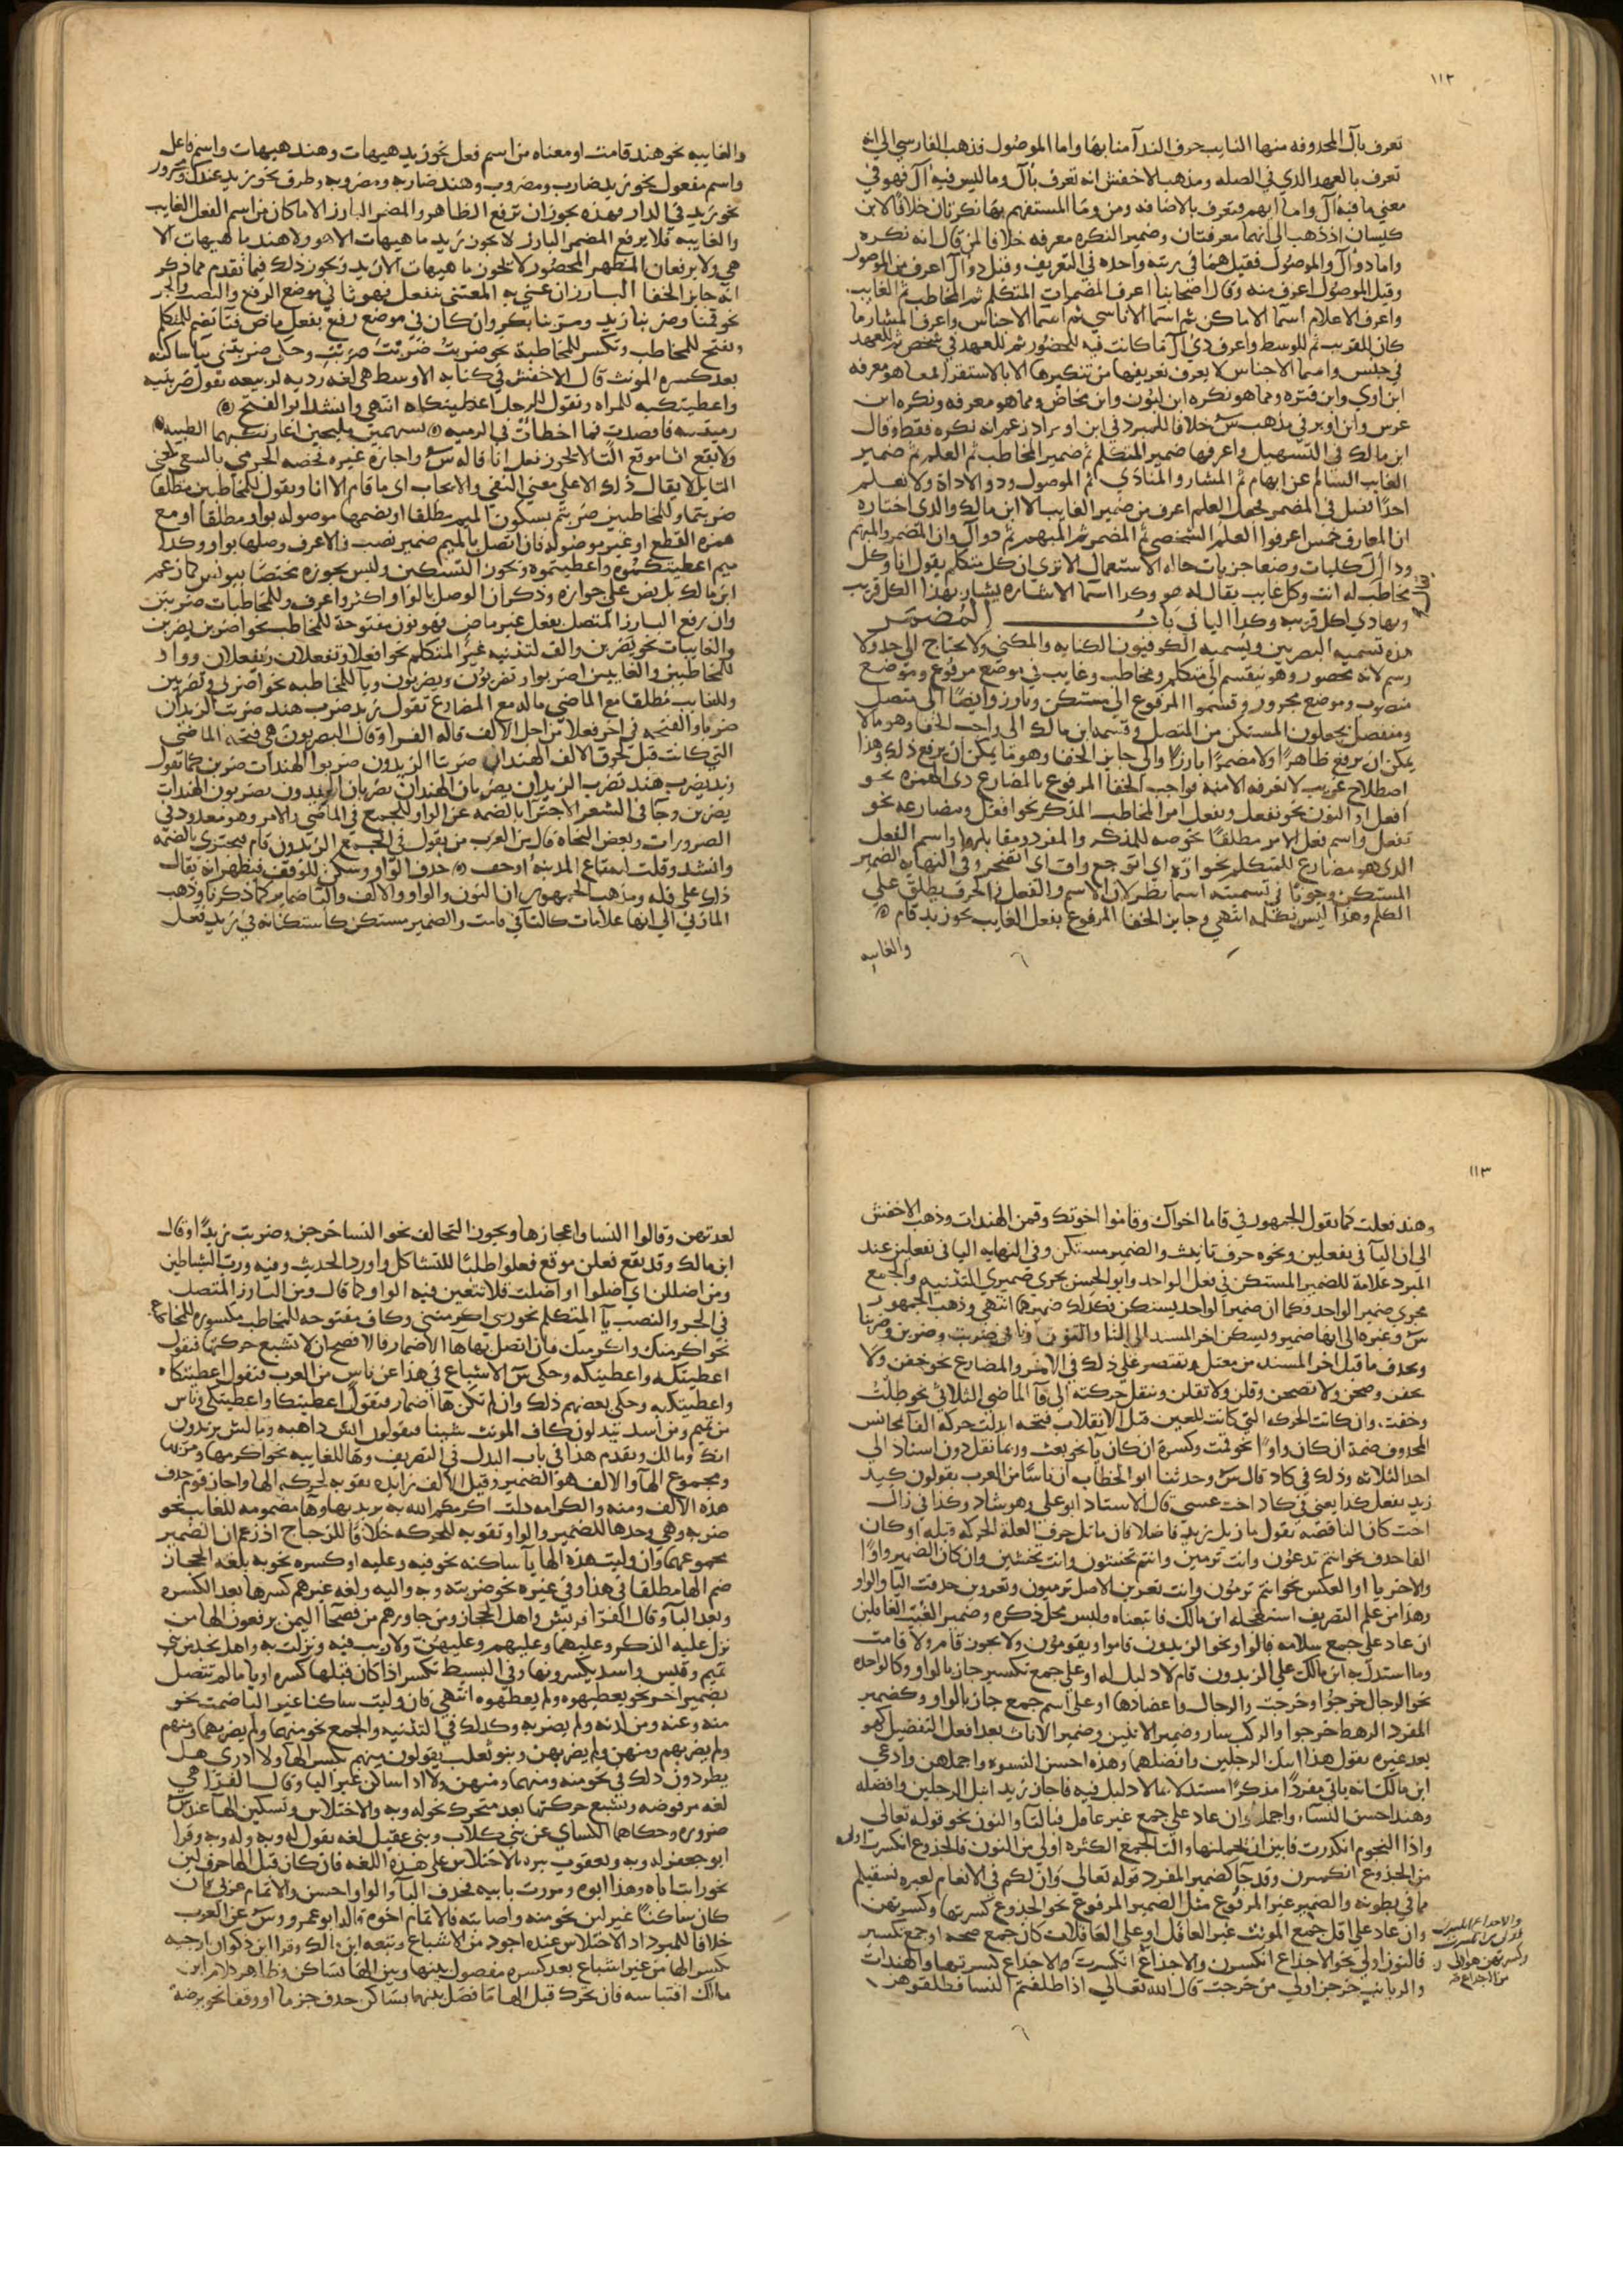 ١١٢
تعرف بآل المحذوفه منها النايب حرف الندآ منابها واما الموصول فذهب الفارسي الى انه
تعرف بالعهد الذي في الصله ومذهب الاخفش انه تعرف بأل وما ليس فيه آل فهو في
معني ما فيه آل واما ايهم فتعرف بالاضافه ومن وما المستفهم بها نكرتان خلافا لابن
كيسان اذ ذهب الى انهما معرفتان وضمير النكره معرفه خلافا لمن قال انه نكره
واما ذو آل والموصول فقيل هما في رتبه واحده في التعريف وقيل ذو آل اعرف من الموصول
وقيل الموصول اعرف منه وقال اصحابنا اعرف المضمرات المتكلم ثم المخاطب ثم الغايب
واعرف الاعلام اسما الاماكن ثم اسما الاناسي ثم اسما الاجناس واعرف المشار ما
كان للقريب ثم للوسط واعرف ذي آل ما كانت فيه للحضور ثم للعهد في شخص ثم للعهد
في جنس واسما الاجناس لا يعرف تعريفها من تنكيرها الا بالاستقرا فمما هو معرفه
ابن اوي وابن قتره ومما هو نكره ابن لبون وابن مخاض ومما هو معرفه ونكره ابن
عرس وابن اوبر في مذهب س خلافا للمبرد في ابن اوبر اذ زعم انه نكره فقط وقال
ابن مالك في التسهيل واعرفها ضمير المتكلم ثم ضمير المخاطب ثم العلم ثم ضمير
الغايب السالم عن ابهام ثم المشار والمنادي ثم الموصول وذو الاداة ولا نعلم
احدًا فصل في المضمر فجعل العلم اعرف من ضمير الغايب الا ابن مالك والذي اختاره
ان المعارف خمس اعرفها العلم الشخصي ثم المضمر ثم المبهم ثم ذو آل وان المضمر والمبهم
وذا أل كليات وضعا جزيات حاله الاستعمال الا تري ان كل متكلم يقول انا وكل
مخاطب له انت وكل غايب يقال له هو وكذا اسما الاشاره يشار بهذا لكل قريب
وبهاذي لكل قريبه وكذا الباقي باب المُضمَر
هذه تسميه البصريين ويسميه الكوفيون الكنايه والمكني ولا يحتاج الى حد ولا
رسم لانه محصور وهو ينقسم الى متكلم ومخاطب وغايب في موضع مرفوع وموضع
منصوب وموضع مجرور وقسموا المرفوع الى مستكن وبارز وايضًا الى متصل
ومنفصل يجعلون المستكن من المتصل وقسمه ابن مالك الى واجب الخفا وهو ما لا
يمكن ان يرفع ظاهرًا ولا مضمرًا بارزًا والى جايز الخفا وهو ما يمكن ان يرفع ذلك وهذا
اصطلاح غريب لا نعرفه الا منه فواجب الخفا المرفوع بالمضارع ذى الهمزه نحو
افعل او النون نحو نفعل وبفعل امر المخاطب المذكر نحو افعل ومضارعه نحو
تفعل واسم فعل الامر مطلقًا
المستكن وجوبًا في تسميته اسما نظر لان الاسم والفعل والحرف يطلق علي
الكلم وهذا ليس بكلمه انتهي وجايز الخفا المرفوع بفعل الغايب نحو زيد قام
والغايبه
والغايبه نحو هند قامت او معناه من اسم فعل نحو زيد هيهات وهند هيهات واسم فاعل
واسم مفعول نحو زيد ضارب ومضروب وهند ضاربه ومضروبه وظرف نحو زيد عندك ومجرور
نحو زيد في الدار فهذه يجوز ان ترفع الظاهر والمضمر البارز الا ما كان من اسم الفعل الغايب
والغايبه فلا يرفع المضمر البارز لا يجوز زيد ما هيهات الا هو ولا هند ما هيهات الا
هي ولا يرفعان المظهر المحصور لا يجوز ما هيهات الا زيد ويجوز ذلك فيما تقدم مما ذكر
انه جايز الخفا البارز ان عني به المعتني بنفعل فهو نا في موضع الرفع والنصب والجر
نحو قمنا وضربنا زيد ومر بنا بكر وان كان في موضع رفع بفعل ماض فتا تضم للمتكلم
وتفتح للمخاطب وتكسر للمخاطبة نحو ضربتُ ضربتَ ضربتِ وحكي ضربتني بيا ساكنه
بعد كسره المونث قال الاخفش في كتابه الاوسط هي لغه رديه لربيعه تقول ضربتيه
واعطيتكيه للمراه وتقول للرجل اعطيتكاه انتهي وانشد ابو الفتح
رميتيه فاقصدت فما اخطأت في الرميه بسهمين مليحين اعارتكيهما الظبيه
ولا يقع انا موقع التا لا يجوز فعل انا قاله س واجازه غيره
المتايل لا يقال ذلك الا علي معني النفي والايجاب اي ما قام الا انا وتقول للمخاطبين مطلقا
ضربتما وللمخاطبين ضربتم بسكون الميم مطلقا او بضمها موصوله بواو مطلقا او مع
همزه القطع او غير موصوله فان اتصل بالميم ضمير نصب فالاعرف وصلها بواو وكذا
ميم اعطيتكموه واعطيتموه ويجوز التسكين وليس تجويزه مختصًا بيونس كما زعم
ابن مالك بل نص علي جوازه وذكر ان الوصل بالواو اكثر واعرف وللمخاطبات ضربتن
وان رفع البارز المتصل بفعل غير ماض فهو نون مفتوحة للمخاطب نحو اضربن يضربن
والغايبات نحو يضربن والف لتثنيه غير المتكلم نحو افعلا وتفعلان ويفعلان وواو
للمخاطبين والغايبين اضربوا وتضربون ويضربون ويا للمخاطبه نحو اضربي وتضربين
وللغايب مطلقا مع الماضي ماله مع المضارع تقول زيد ضرب هند ضربت الزيدان
ضربا والفتحه في اخر فعلا من اجل الالف قاله الفرا وقال البصريون هي فتحه الماضي
التي كانت قبل لحوق الالف الهندان ضربتا الزيدون ضربوا الهندات ضربن كما تقول
زيد يضرب هند تضرب الزيدان يضربان الهندان تضربان الزيدون يضربون الهندات
يضربن وجا في الشعر الاجتزا بالضمه عن الواو للجمع في الماضي والامر وهو معدود في
الضرورات وبعض النحاة قال من العرب من يقول في الجمع الزيدون قام فيجتزي بالضمه
ذلك علي قله ومذهب الجمهور ان النون والواو والالف والتا ضماير كما ذكرنا وذهب
المازني الى انها علامات كالتا في قامت والضمير مستكن كاستكنانه في زيد فعل
١١٣
وهند فعلت كما تقول الجمهور في قاما اخواك وقاموا اخوتك وقمن الهندات وذهب الاخفش
الى ان اليآ في تفعلين ونحوه حرف تانيث والضمير مستكن وفي النهايه اليا في تفعلين عند
المبرد علامة للضمير المستكن في فعل الواحد وابو الحسن يجري ضميري التثنيه والجمع
مجري ضمير الواحد فكما ان ضمير الواحد يستكن فكذلك ضميرهما انتهي وذهب الجمهور
س وغيره الى انها ضمير ويسكن اخر المسند الى التا والنون ونا في ضربت وضربن وضربنا
ويحذف ما قبل اخر المسند من معتل ويقتصر علي ذلك في الامر والمضارع نحو خفن ولا
تخفن وصحن ولا تصحن وقلن ولا تقلن وتنقل حركته الى فآ الماضي الثلاثي نحو طلتُ
وخفت، وان كانت الحركه التي كانت للعين قبل الانقلاب فتحه ابدلت حركه الفآ بمجانس
المحذوف ضمة ان كان واوًا نحو قمت وكسرة ان كان يآ نحو بعت وربما نقل دون اسناد الي
احد الثلاثه وذلك في كاد قال س وحدثنا ابو الخطاب ان ناسًا من العرب يقولون كيد
زيد يفعل كذا يعني في كاد اخت عسي قال الاستاد ابو علي وهو شاد وكذا في زال
اخت كان الناقصه تقول ما زيل زيد فاضلا فان ماثل حرف العلة الحركه قبله او كان
الفا حذف نحو انتم تدعون وانت ترمين وانتم تخشون وانت تخشين وان كان الضمير واوًا
والاخر يا او العكس نحو انتم ترمُون وانت تغزين الاصل ترميون وتغزوين حذفت اليآ والواو
وهذا من علم التصريف استعجله ابن مالك فاتبعناه وليس محل ذكره وضمير الغيّب العاقلين
ان عاد علي جمع سلامه فالواو نحو الزيدون قاموا ويقومون ولا يجوز قام ولا قامت
وما استدل به ابن مالك علي الزيدون قام لا دليل له او علي جمع تكسير جاز بالواو وكالواحده
نحو الرجال خرجوا وخرجت والرجال واعضادها او علي اسم جمع جاز بالواو وكضمير
المفرد الرهط خرجوا والركب سار وضمير الاثنين وضمير الاناث بعد افعل التفضيل كهو
بعد غيره تقول هذا انبل الرجلين وافضلهما وهذه احسن النسوه واجملهن وادعي
ابن مالك انه ياتي مفردًا مذكرًا مستدلا بما لا دليل فيه فاجاز زيد انبل الرجلين وافضله
وهند احسن النسآء واجمله وان عاد علي جمع غير عاقل فبالتا والنون نحو قوله تعالي
واذا النجوم انكدرت فابين ان يحملنها والتا لجمع الكثره اولي من النون فالجذوع انكسرت اولى
من الجذوع انكسرن وقد جآ كضمير المفرد قوله تعالي وان لكم في الانعام لعبره نسقيكم
مما في بطونه والضمير غير المرفوع مثل الضمير المرفوع نحو الجذوع كسرتها وكسرتهن
وان عاد علي اقل جمع المونث غير العاقل او علي العاقلات كان جمع صحه او جمع تكسير
فالنون اولي نحو الاجذاع انكسرن والاجذاع انكسرت والاجذاع كسرتها والهندات
والربايب خرجن اولي من خرجت قال الله تعالي اذا طلقتم النسا فطلقوهن
لعدتهن وقالوا النسا واعجازها ويجوز التحالف نحو النسا خرجن وضربت زيدًا وقال
ابن مالك وقد يقع فعلن موقع فعلوا طلبًا للتشاكل واورد الحديث وفيه ورب الشياطين
ومن اضللن اي اضلوا او اضلت فلا تتعين فيه الواو كما قال ومن البارز المتصل
في الجر والنصب يآ المتكلم نحو رسي اكرمني وكاف مفتوحه للمخاطب مكسوره للمخاطبه
نحو اكرمتك واكرمتك فان اتصل بها ها الاضمار فالافصح ان لا تشبع حركتها فتقول
اعطيتكه واعطيتكه وحكي س الاشباع في هذا عن ناس من العرب فتقول اعطيتكاه
واعطيتكيه وحكي بعضهم ذلك وان لم تكن ها اضمار فتقول اعطيتكا واعطيتكي وناس
من تميم ومن اسد يبدلون كاف المونث شينا فيقولون انش ذاهبه ومالش يريدون
انك ومالك وتقدم هذا في باب البدل في التصريف وها للغايبه نحو اكرمها ومر بها
ومجموع الهآ والالف هو الضمير وقيل الالف زايده تقويه لحركه الها واجاز قوم حذف
هذه الالف ومنه والكرامه ذات اكرمكم الله به يريد بها وهآ مضمومه للغايب نحو
ضربه وهي وحدها الضمير والواو تقويه للحركه خلافًا للزجاج اذ زعم ان الضمير
مجموعهما وان وليت هذه الها يآ ساكنه نحو فيه وعليه او كسره نحو به بلغه الحجاز
ضم الها مطلقا في هذا وفي غيره نحو ضربته وبه واليه ولغه غيرهم كسرها بعد الكسره
وبعد اليآ وقال الفرا قريش واهل الحجاز ومن جاورهم من فصحآ اليمن يرفعون الها من
نزل عليه الذكر وعليهما وعليهم وعليهن ولا ريب فيه ونزلت به واهل نجد من
تميم وقيس واسد يكسرونها وفي البسيط تكسر اذا كان قبلها كسره او يا ما لم تتصل
بضمير اخر نحو يعطيهوه ولم يعطهوه انتهي فان وليت ساكنا غير اليا ضمت نحو
منه وعنه ومن لدنه ولم يضربه وكذلك في التثنيه والجمع نحو منهما ولم يضربهما ومنهم
ولم يضربهم ومنهن ولم يضربهن وبنو تغلب يقولون منهم بكسر الها ولا ادري هل
يطردون ذلك في نحو منه ومنهما ومنهن ولا اذا ساكن غير اليا وقال الفرا هي
لغه مرفوضه وتشبع حركتها بعد متحرك نحو له وبه والاختلاس وتسكين الها عند س
ضروره وحكاهما الكساي عن بني كلاب وبني عقيل لغه يقول له وبه وله وبه وقرا
ابو جعفر له وبه ويعقوب بيده بالاختلاس علي هذه اللغه فان كان قبل الها حرف لين
نحو رايت اباه وهذا ابوه ومررت بابيه فحذف اليآ والواو احسن والاتمام عربي وان
كان ساكنًا غير لين نحو منه واصابته فالاتمام اجود قاله ابو عمرو وس عن العرب
خلافا للمبرد اذ الاختلاس عنده اجود من الاشباع وتبعه ابن مالك وقرا ابن ذكوان ارجيه
بكسر الها من غير اشباع بعد كسره مفصول بينها وبين الها بساكن وظاهر كلام ابن
مالك اقتياسه فان تحرك قبل الها ما فصل بينهما بساكن حذف جزما او وقفا نحو يرضه